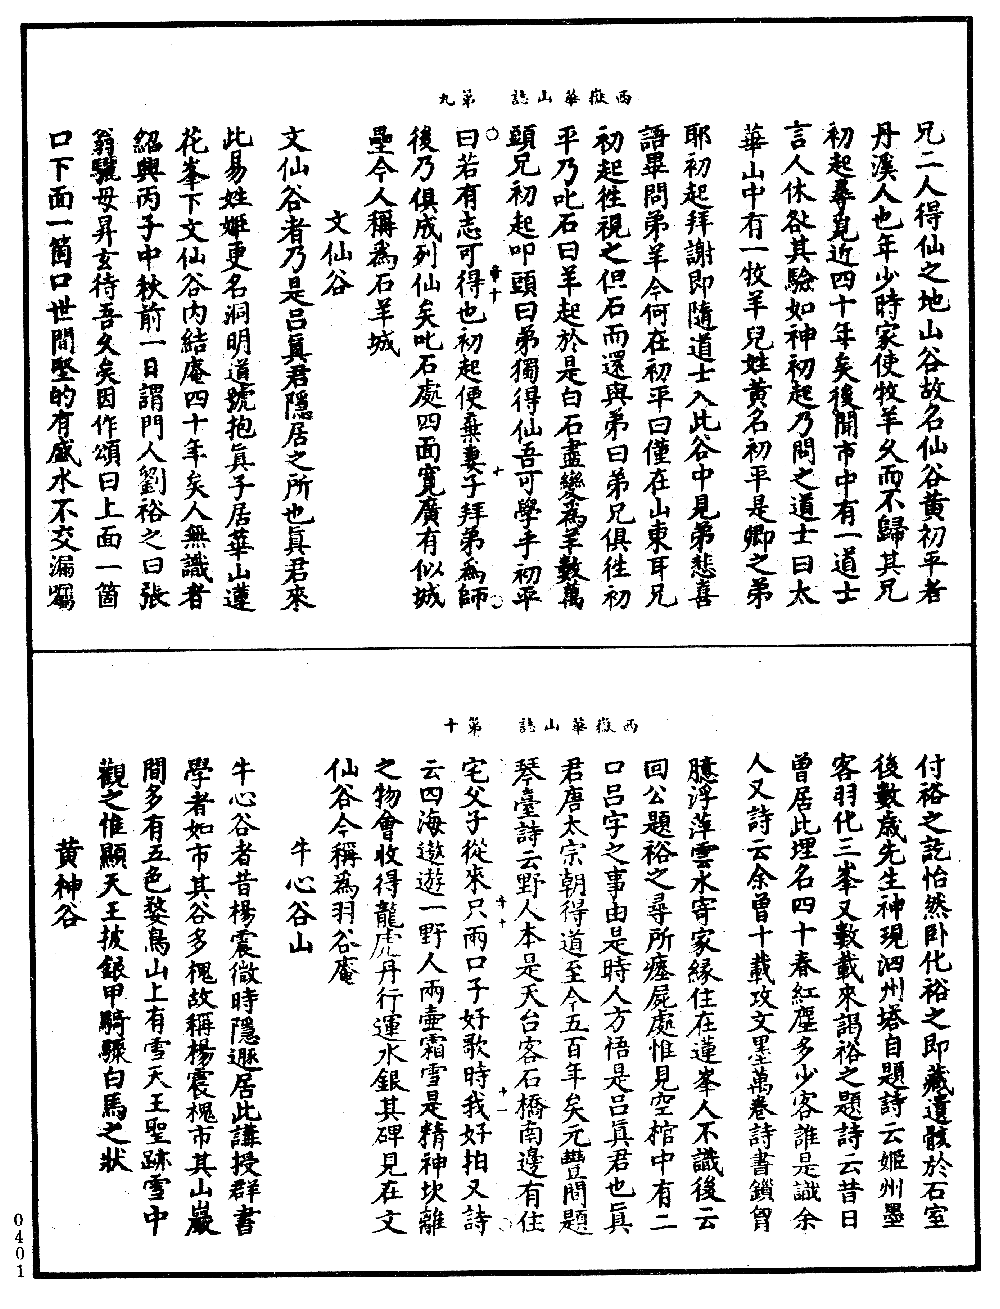 西嶽華山誌　第九
兄二人得仙之地山谷故名仙谷黃初平者
丹溪人也年少時家使牧羊久而不歸其兄
初起尋覓近四十年矣後聞市中有一道士
言人休咎其驗如神初起乃問之道士曰太
華山中有一牧羊兒姓黃名初平是卿之弟
耶初起拜謝即隨道士入此谷中見弟悲喜
語畢問弟羊今何在初平曰僅在山東耳兄
初起徃視之但石而還與弟曰弟兄俱徃初
平乃叱石曰羊起於是白石盡變為羊數萬
頭兄初起叩頭曰弟獨得仙吾可學乎初平
曰若有志可得也初起便棄妻子拜弟為師
後乃俱成列仙矣叱石處四面寬廣有似城
壘今人稱爲石羊城
文仙谷
文仙谷者乃是呂眞君隱居之所也眞君來
此易姓姬更名洞明道號抱眞子居華山蓮
花峯下文仙谷內結庵四十年矣人無識者
紹興丙子中秋前一日謂門人劉裕之曰張
翁驢母昇玄待吾久矣因作頌曰上面一箇
口下面一箇口世間堅的有感水不交漏竭
西嶽華山誌　第十
付裕之訖怡然卧化裕之即藏遺骸於石室
後數歲先生神現泗州塔自題詩云姬州墨
客羽化三峯又數載來謁裕之題詩云昔日
曾居此埋名四十春紅塵多少客誰是識余
人又詩云余曾十載攻文墨萬卷詩書鎖胷
臆浮萍雲水寄家緣住在蓮峯人不識後云
回公題裕之尋所瘞屍處惟見空棺中有二
口呂字之事由是時人方悟是呂眞君也眞
君唐太宗朝得道至今五百年矣元豐間題
琴臺詩云野人本是天台客石橋南邊有住
宅父子從來只兩口子好歌時我好拍又詩
云四海遨遊一野人兩壷霜雪是精神坎離
之物會收得龍虎丹行運水銀其碑見在文
仙谷今稱爲羽谷庵
牛心谷山
牛心谷者昔楊震微時隱遯居此講授群書
學者如市其谷多槐故稱楊震槐市其山巖
間多有五色婺鳥山上有雪天王聖跡雪中
觀之惟顯天王披銀甲騎驟白馬之狀
黄神谷
0401